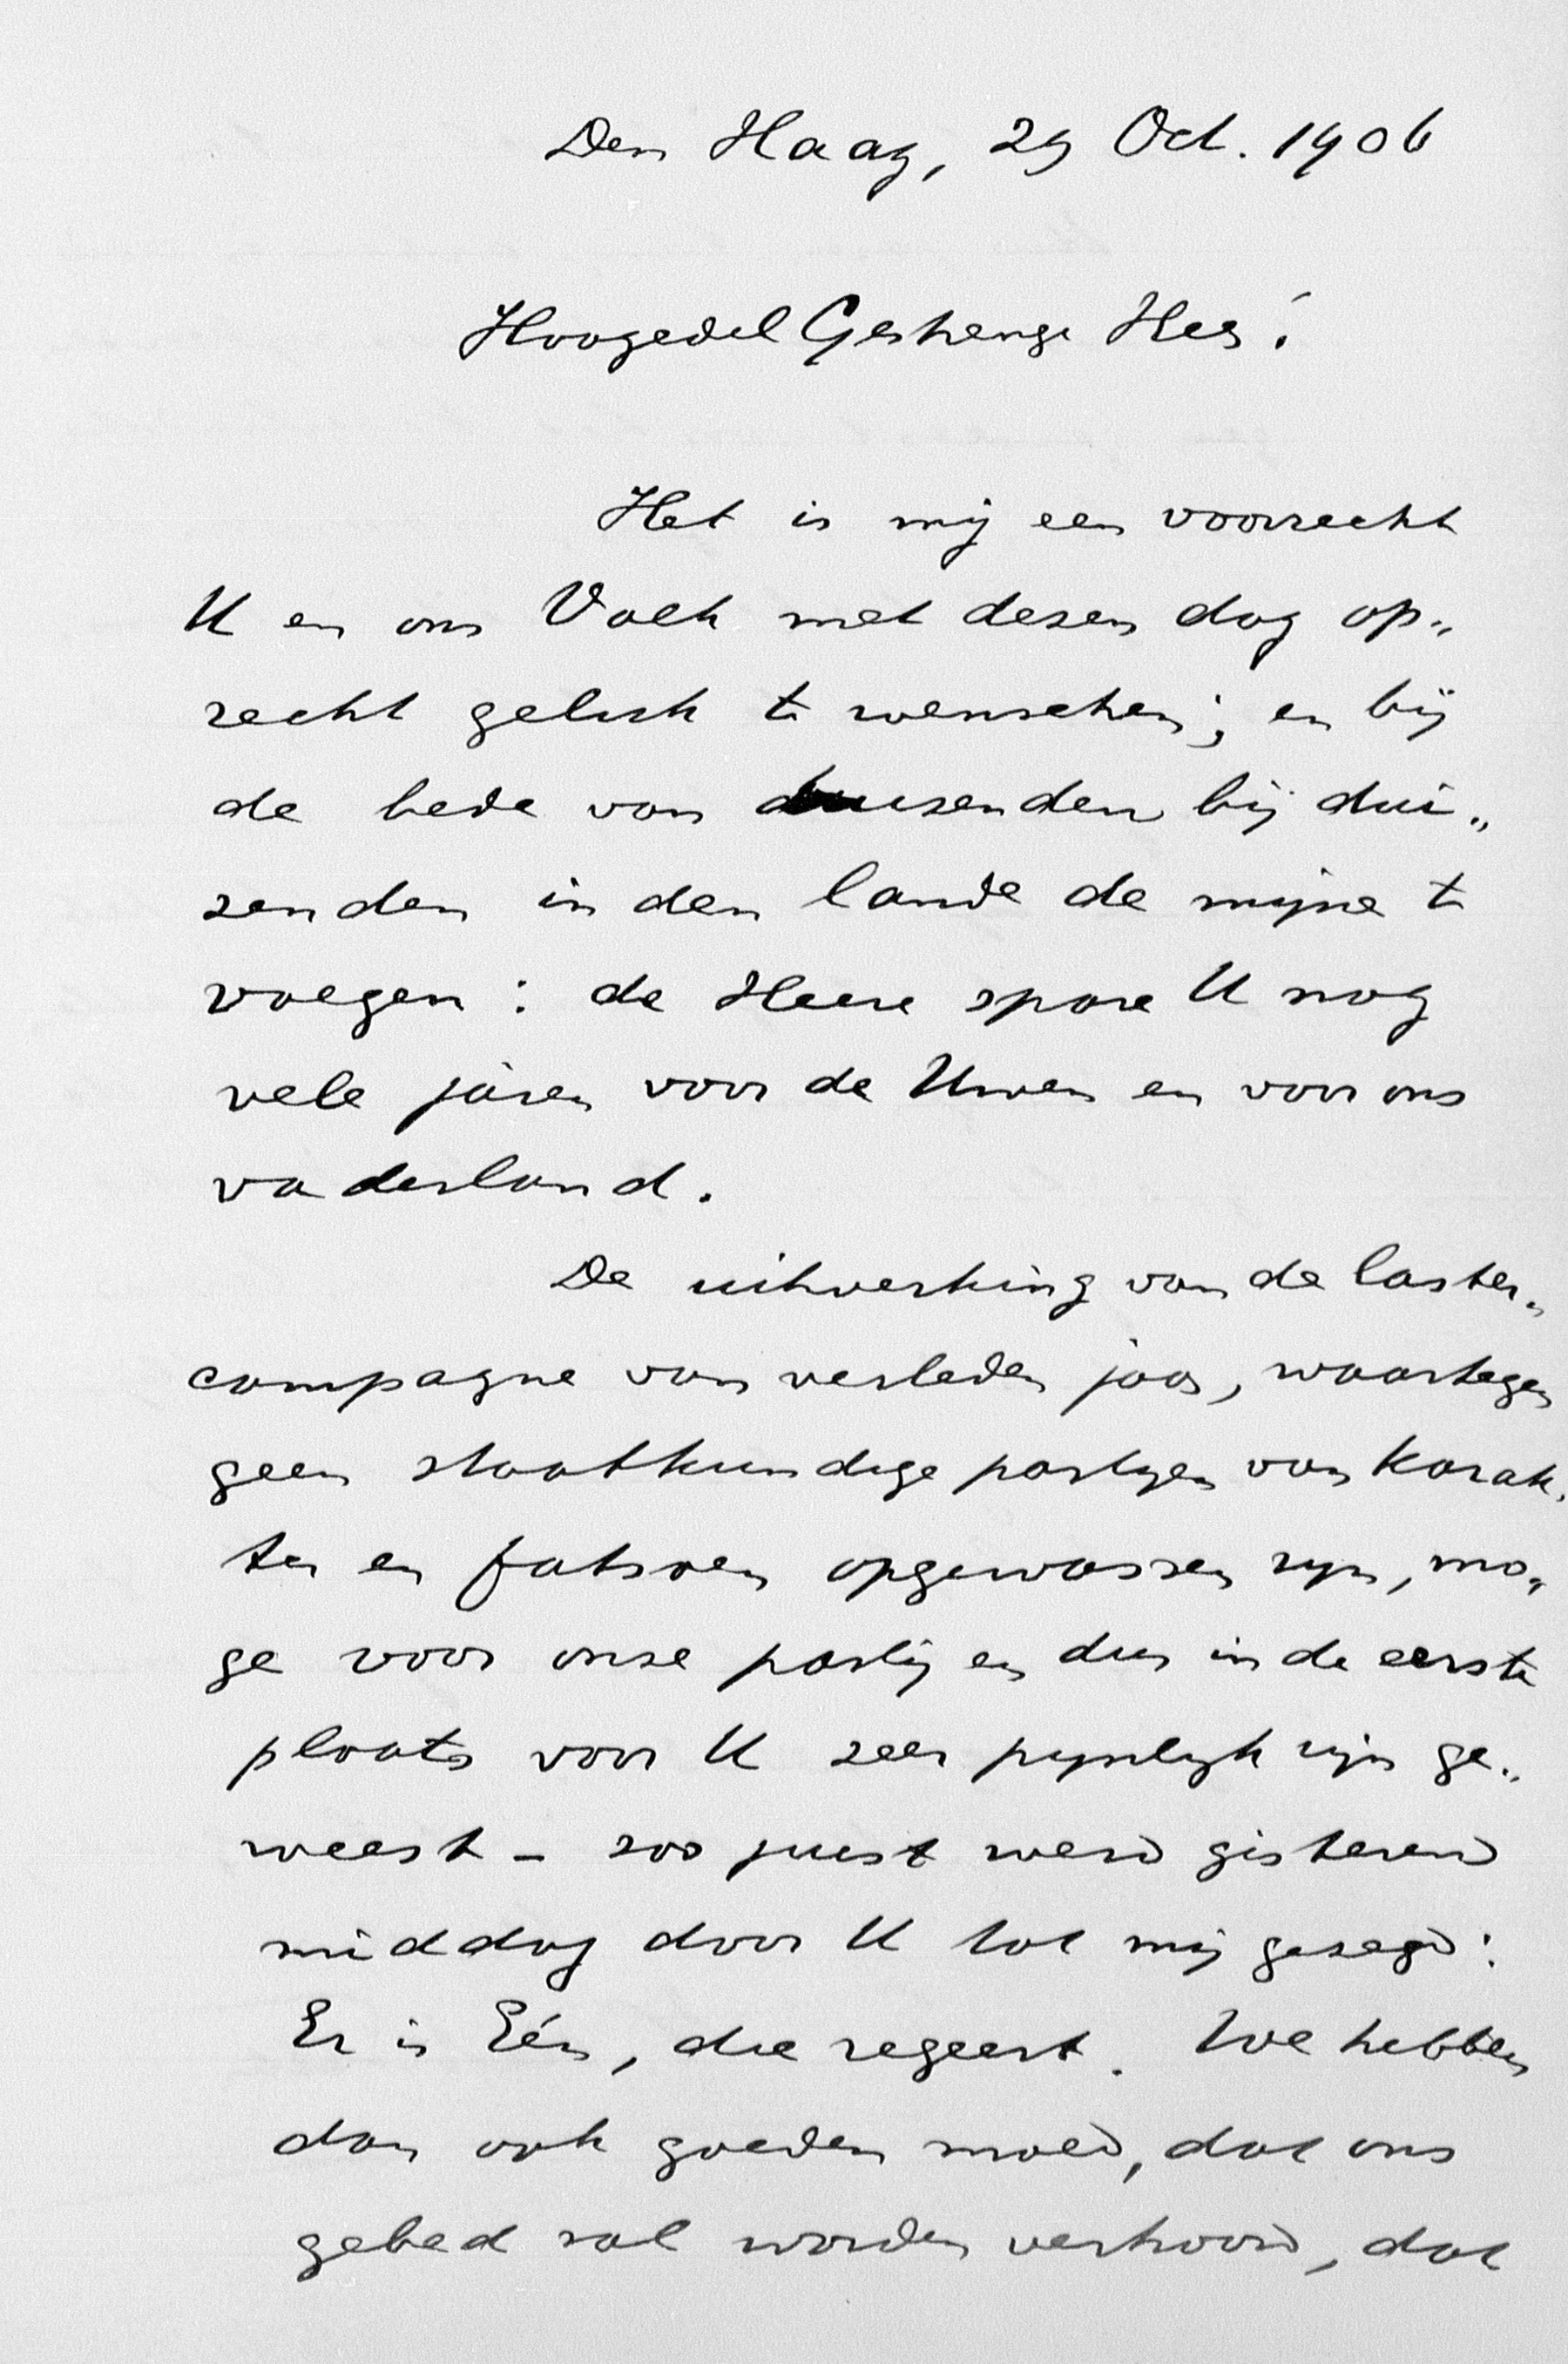 Den Haag, 29 Oct. 1906
Hoogedel Gestrenge Heer!
Het is mij een voorrecht
U en ons Volk met dezen dag op„
recht geluk te wenschen; en bij
de bede van duizenden bij dui„
zenden in den lande de mijne te
voegen: de Heere spare U nog
vele jaren voor de Uwen en voor ons
vaderland.
De uitwerking van de laster„
campagne van verleden jaar, waartegen
geen staatkundige partijen van karak„
ter en fatsoen opgewassen zijn, mo„
ge voor onze partij en dus in de eerste
plaats voor U zeer pijnlijk zijn ge„
weest – zoo juist werd gisteren
middag door U tot mij gezegd:
Er is Eén, die regeert. We hebben
dan ook goeden moed, dat ons
gebed zal worden verhoord, dat